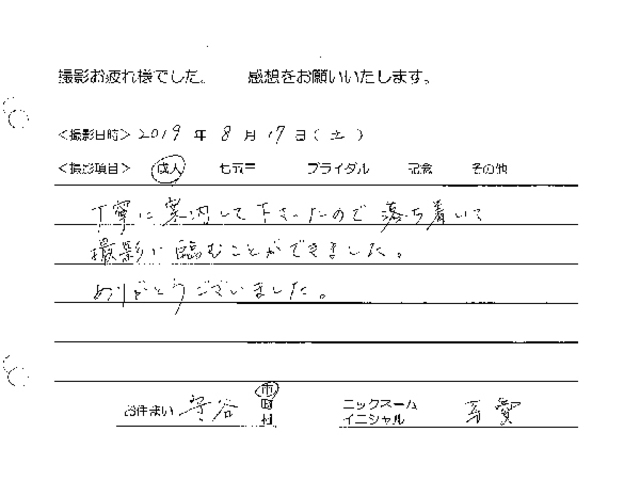 撮影お疲れ様でした。 感想をお願いいたします。
<撮影日時> 2019 年 8 月 17 日(土)
<撮影項目> 成人 七五三 ブライダル 記念 その他
丁寧に案内して下さったので 落ち着いて
撮影に臨むことができました。
ありがとうございました。
お住まい 守谷 市 町 村 ニックネーム イニシャル